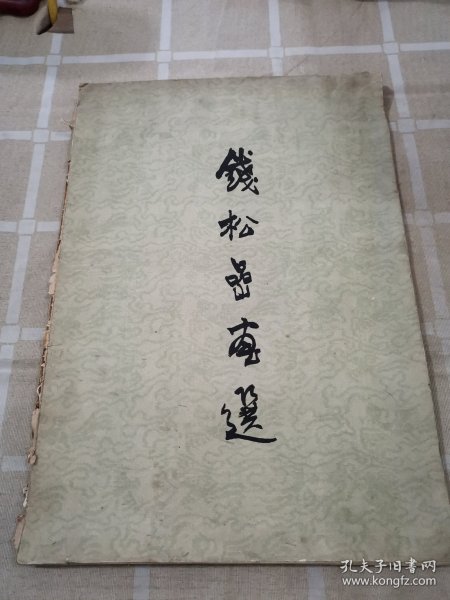 錢松嵒畫選
孔夫子旧书网
www.kongfz.com